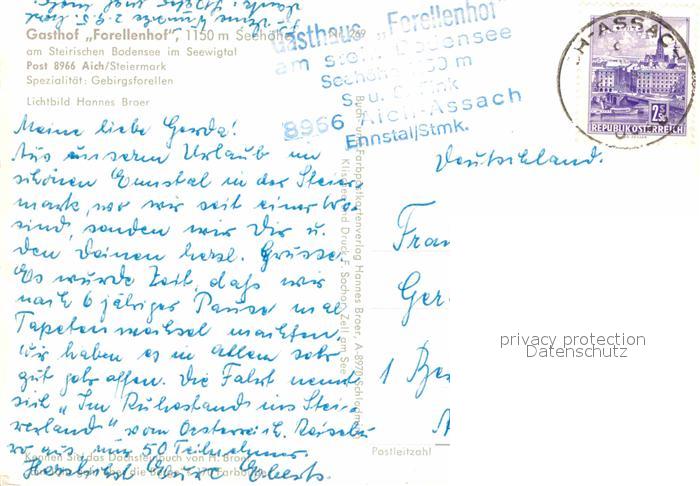 Gasthof „Forellenhof", 1150 m Seehöhe
am Steirischen Bodensee im Seewigtal
Post 8966 Aich/Steiermark
Spezialität: Gebirgsforellen
Lichtbild Hannes Broer
Gasthaus „Forellenhof"
am steir. Bodensee
8966 Aich-Assach
Ennstal/Stmk.
H-ASSACH
2S50
REPUBLIK ÖSTERREICH
Meine liebe Gerda!
Aus unserm Urlaub im
schönen Ennstal in der Steier
mark, wo wir seit einer Wo
sind, senden wir Dir u.
den Deinen herzl. Grüsse.
Es wurde Zeit, daß wir
nach 6 jähriger Pause mal
Tapetenwechsel machten.
Wir haben es in Allem sehr
gut getroffen. Die Fahrt nennt
sich „Im Ruhestand ins Steir
erland" vom Oesterreich. Reisebü
ro aus, mit 50 Teilnehmer.
Herzlichst Eberts.
Kennen Sie das Dachsteinbuch von H. Broer
Buch- und Farbpostkartenverlag Hannes Broer, A-8970 Schladming
Klischee und Druck F. Sochor, Zell am See
Deutschland.
Frau
Ger
1 Be
Postleitzahl
privacy protection
Datenschutz